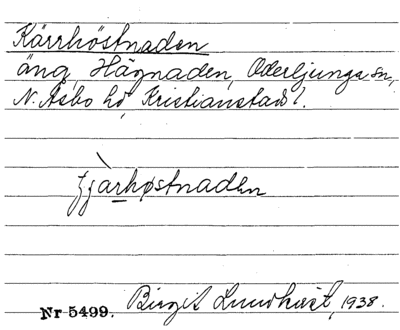 Kärrhöstnaden
äng, Hägnaden, Oderljunga sn,
N. Åsbo hd, Kristianstads l.
tjàrhøstnadən
Nr 5499. Birgit Lundkvist, 1938.